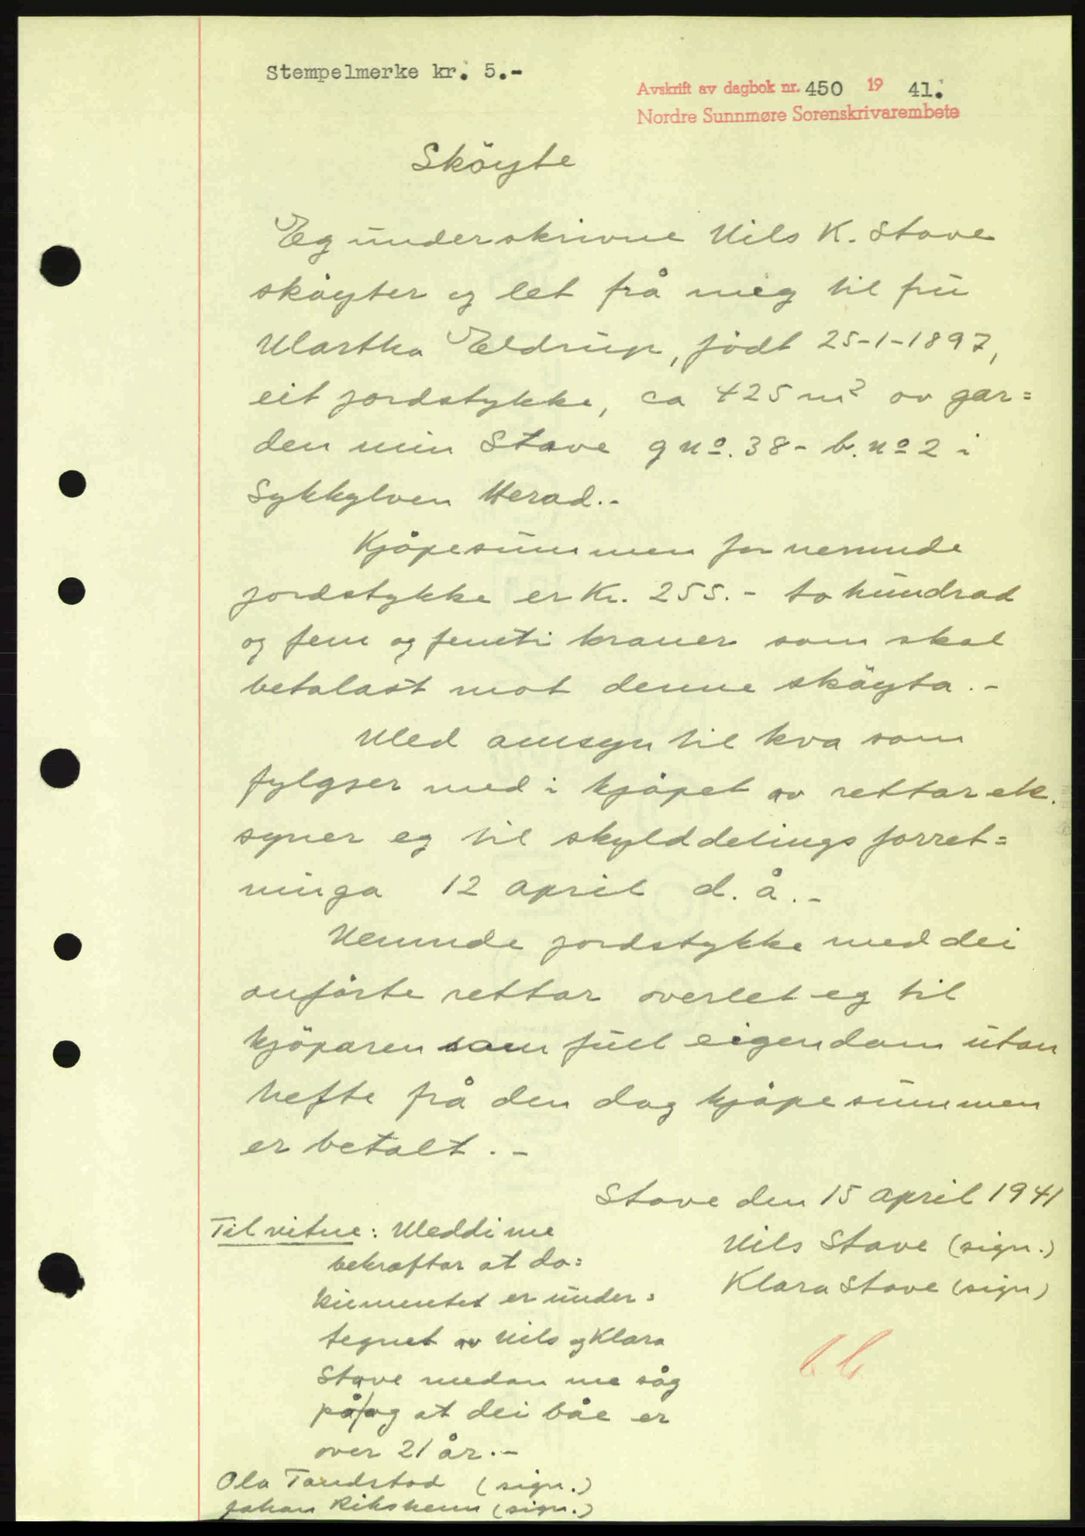 Stempelmerke kr. 5.-
Avskrift av dagbok nr. 450 19 41.
Nordre Sunnmøre Sorenskrivarembete
Sköyte
Eg underskrivne Nils K. Stave
sköyter og let frå meg til fru
Martha Eldrup, födt 25-1-1897,
eit jordstykke, ca 425 m² av gar=
den min Stave g nº. 38- b. nº 2 i
Sykkylven Herad.-
Kjöpesummen for nemnde
jordstykke er Kr. 255.- to hundrad
og fem og femti kroner som skal
betalast mot denne sköyta.-
Med omsyn til kva som
fylgjer med i kjöpet av rettar etc.
syner eg til skylddelingsforret=
ninga 12 april d. å.-
Nemnde jordstykke med dei
anförte rettar overlet eg til
kjöparen som full eigendom utan
hefte frå den dag kjöpesummen
er betalt.-
Stave den 15 april 1941
Nils Stave (sign.)
Klara Stave (sign)
Til vitne: Meddi me
bekræftar at do=
kumentet er under=
tegnet av Nils og Klara
Stave medan me såg
på/og at dei båe er
over 21 år.-
Ola Tandstad (sign.)
Johan Riksheim (sign.)